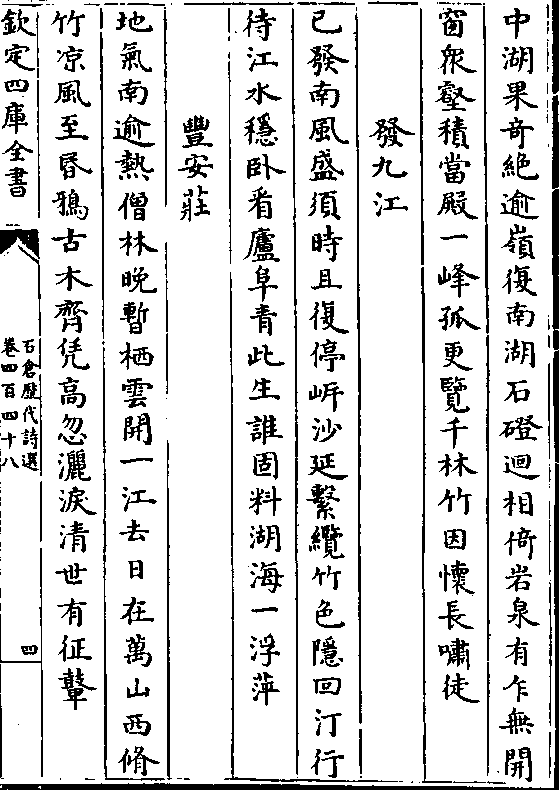 中湖果奇絶逾嶺復南湖石磴迴相倚岩泉有乍無開
窗衆壑積當殿一峰孤更覽千林竹因懷長嘯徒
發九江
已發南風盛須時且復停㟁沙延繫纜竹色隱回汀行
待江水穩卧看廬阜青此生誰固料湖海一浮萍
豐安莊
地氣南逾熱僧林晚暫栖雲開一江去日在萬山西脩
竹凉風至昏鴉古木齊凭高忽灑淚清世有征鼙
欽定四庫全書
石倉歷代詩選
卷四百四十八
四